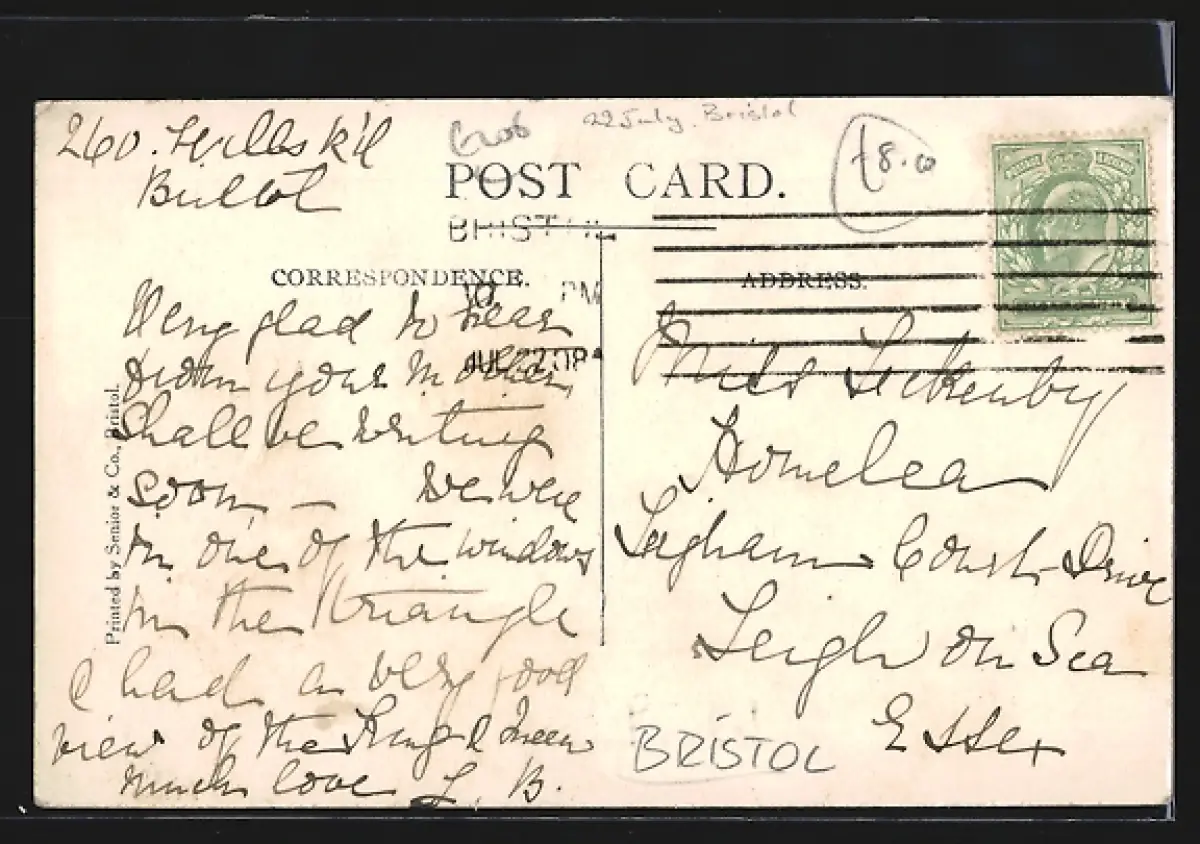 22 July. Bristol
£8.00
260.
Bristol
POST CARD.
BRISTOL
PM
JUL 22 08
CORRESPONDENCE.
Very glad to hear
from your Mother
Shall be writing
soon — We were
in one of the windows
in the triangle
& had a very good
view of the King & Queen
much love L. B.
Printed by Senior & Co., Bristol.
ADDRESS.
Miss Leckenby
Homelea
Leigham Court Drive
Leigh on Sea
Essex
BRISTOL